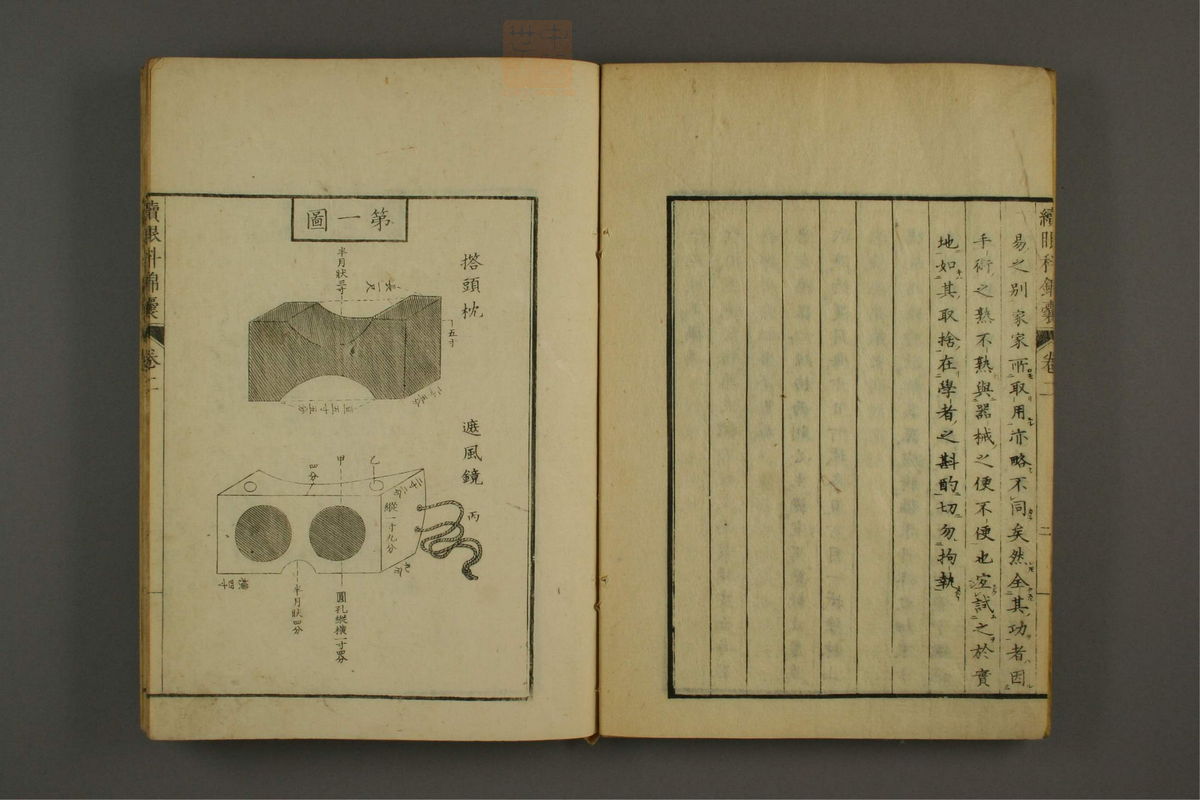 續眼科錦囊 卷二 二
易之別家家所取用亦略不同矣然全其功者因
手術之熟不熟與器械之便不便也宜試之於實
地如其取捨在學者之斟酌切勿拘執
第一圖
搭頭枕
半月狀三寸
長一尺
五寸
遮風鏡
甲
乙
丙
四分
縱一寸九分
半月狀四分
圓孔縱橫一寸四分
續眼科錦囊 卷二